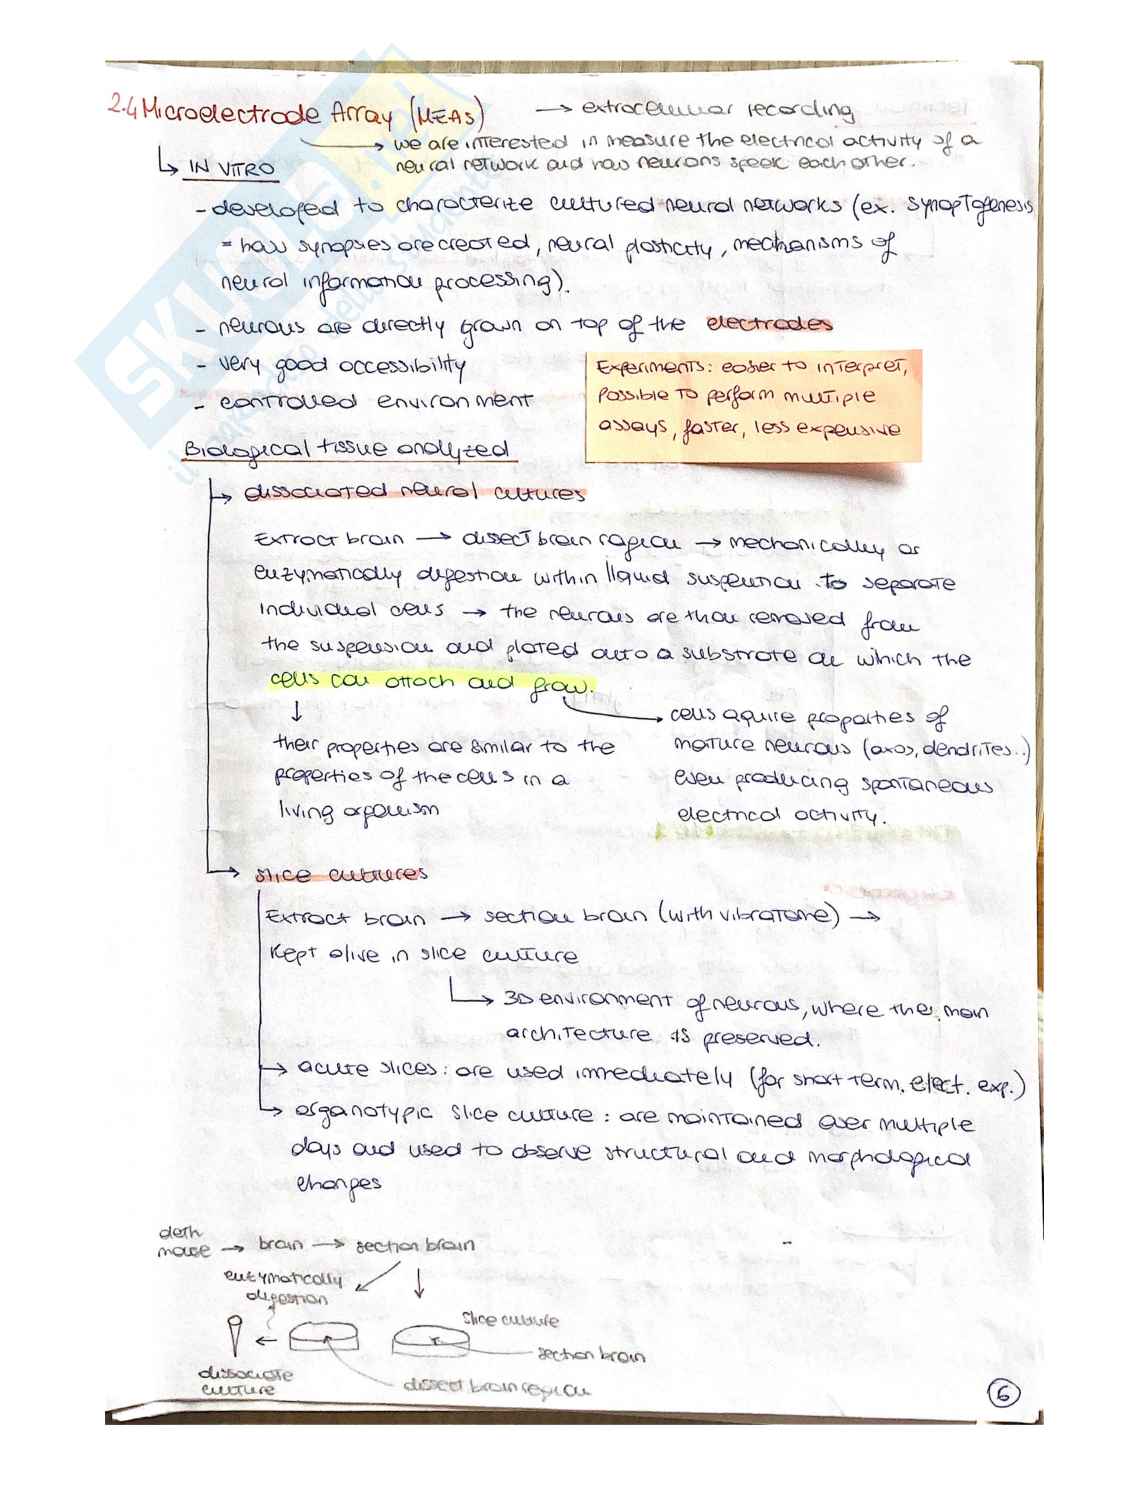 2.4 Microelectrode Array (MEAS) → extracellular recording
→ we are interested in measure the electrical activity of a
neural network and how neurons speek each other.
↳ IN VITRO
- developed to characterize cultured neural networks (ex. synaptogenesis
= how synapses are created, neural plasticity, mechanisms of
neural information processing).
- neurons are directly grown on top of the electrodes
- very good accessibility
- controlled environment
Experiments: easier to interpret,
possible to perform multiple
assays, faster, less expensive
Biological tissue analyzed
→ dissociated neural cultures
Extract brain → dissect brain region → mechanically or
enzymatically digestion within liquid suspention to separate
individual cells → the neurons are than removed from
the suspension and plated onto a substrate on which the
cells can attach and grow.
↓
their properties are similar to the
properties of the cells in a
living organism
→ cells aquire properties of
mature neurons (axos, dendrites..)
even producing spontaneous
electrical activity.
→ slice cultures
Extract brain → section brain (with vibratome) →
Kept alive in slice culture
↳ 3D environment of neurons, where the main
architecture is preserved.
→ acute slices: are used immediately (for short term. elect. exp.)
→ organotypic slice culture: are maintained over multiple
days and used to observe structural and morphological
changes
deth
mouse → brain → section brain
enzymatically
digestion
slice culture
section brain
dissociate
culture
dissect brain region
6
SKUOLA.net